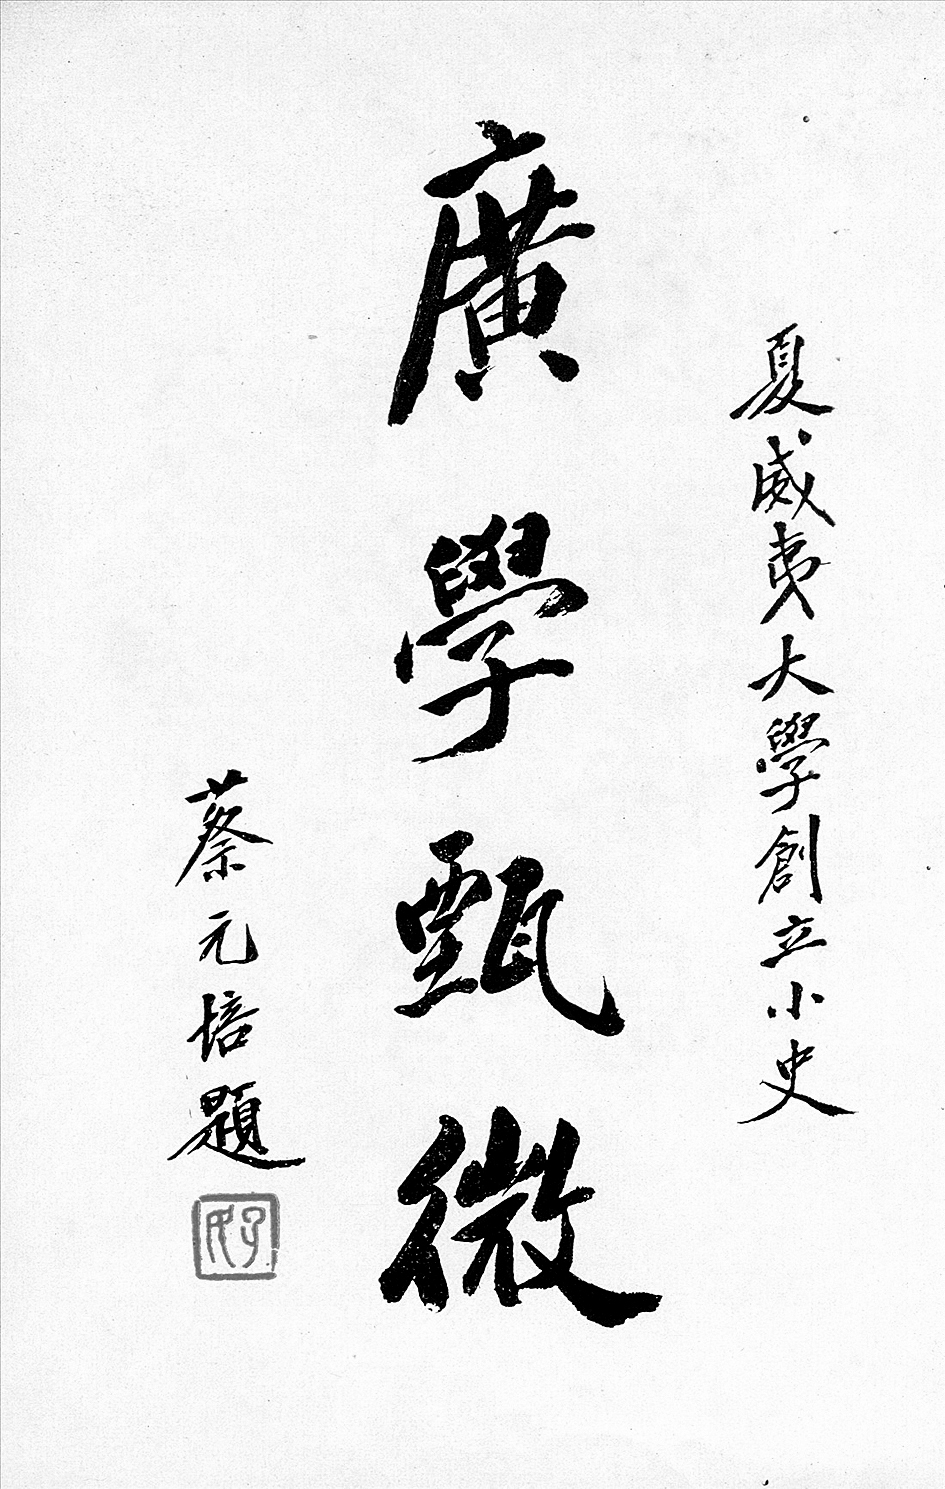 夏威夷大學創立小史
廣學甄微
蔡元培題